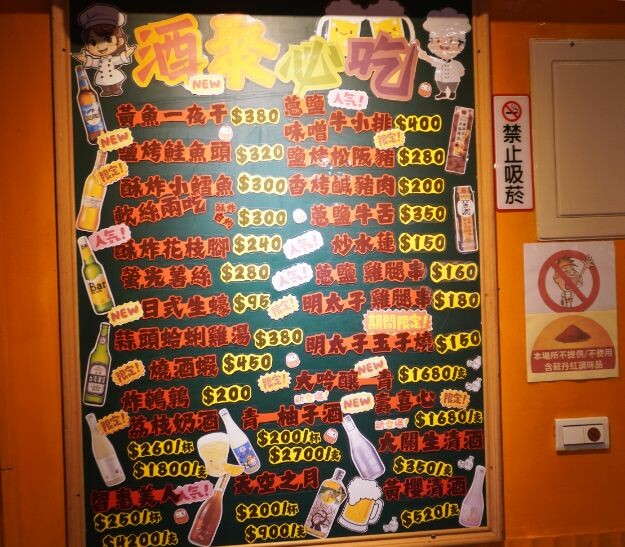 酒聚必吃
NEW
黃魚一夜干 $380
NEW
鹽烤鮭魚頭 $320
限定!
酥炸小鱈魚 $300
軟絲兩吃 $300
人氣!
酥炸花枝腳 $240
螢光薯絲 $280
NEW
日式生蠔 $95
蒜頭蛤蜊雞湯 $380
限定!
燒酒蝦 $450
炸鵪鶉 $200
限定!
荔枝奶酒
$260/杯
$1800/支
智惠美人 人氣!
$250/杯
$4200/支
人氣!
蔥鹽
味噌 牛小排 $400
限定!
鹽烤松阪豬 $280
香烤鹹豬肉 $200
蔥鹽牛舌 $350
人氣!
炒水蓮 $150
人氣!
蔥鹽 雞腿串 $160
限定!
明太子 雞腿串 $180
期間限定!
明太子玉子燒 $150
限定!
大吟釀一青 $1680/支
NEW
壽喜心 限定!
$1680/支
青一柚子酒
$200/杯
$2700/支
NEW
大關生清酒
$350/支
天空之月
$200/杯
$900/支
黃櫻清酒
$520/支
Bar
禁止吸菸
本場所不提供/不使用
含蘇丹紅調味品